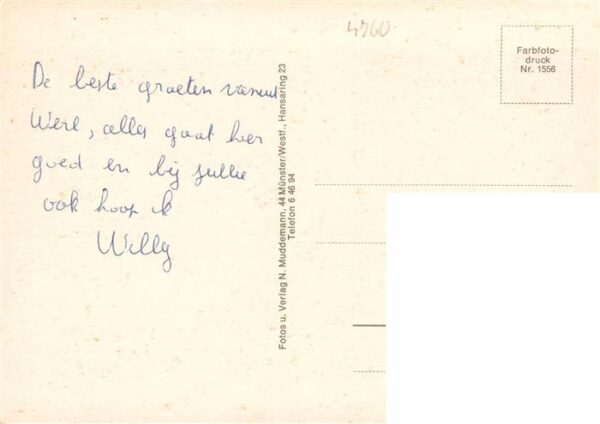 4760
Farbfoto-
druck
Nr. 1556
De beste groeten vanuit
Werl, alles gaat hier
goed en bij jullie
ook hoop ik
Willy
Fotos u. Verlag N. Muddemann, 44 Münster/Westf., Hansaring 23
Telefon 6 46 94